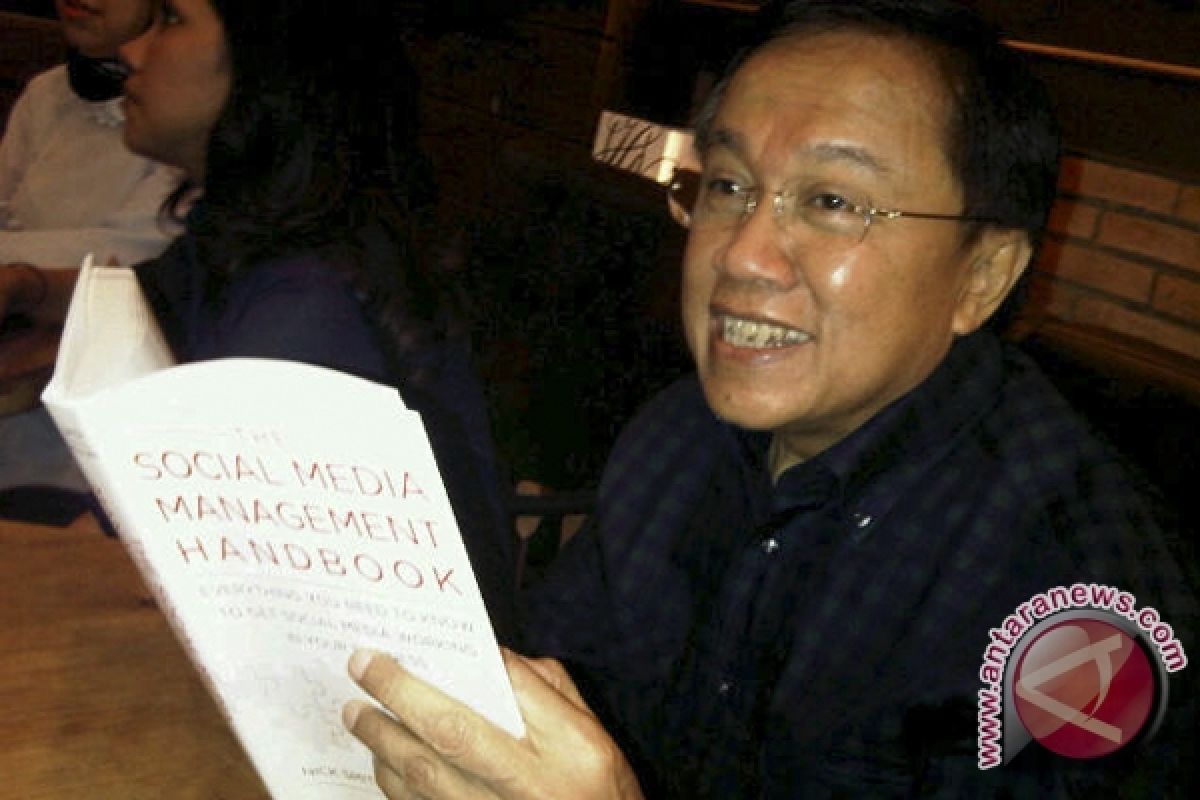 THE
SOCIAL MEDIA
MANAGEMENT
HANDBOOK
EVERYTHING YOU NEED TO KNOW
TO GET SOCIAL MEDIA WORKING
IN YOUR
NICK
www.antaranews.com